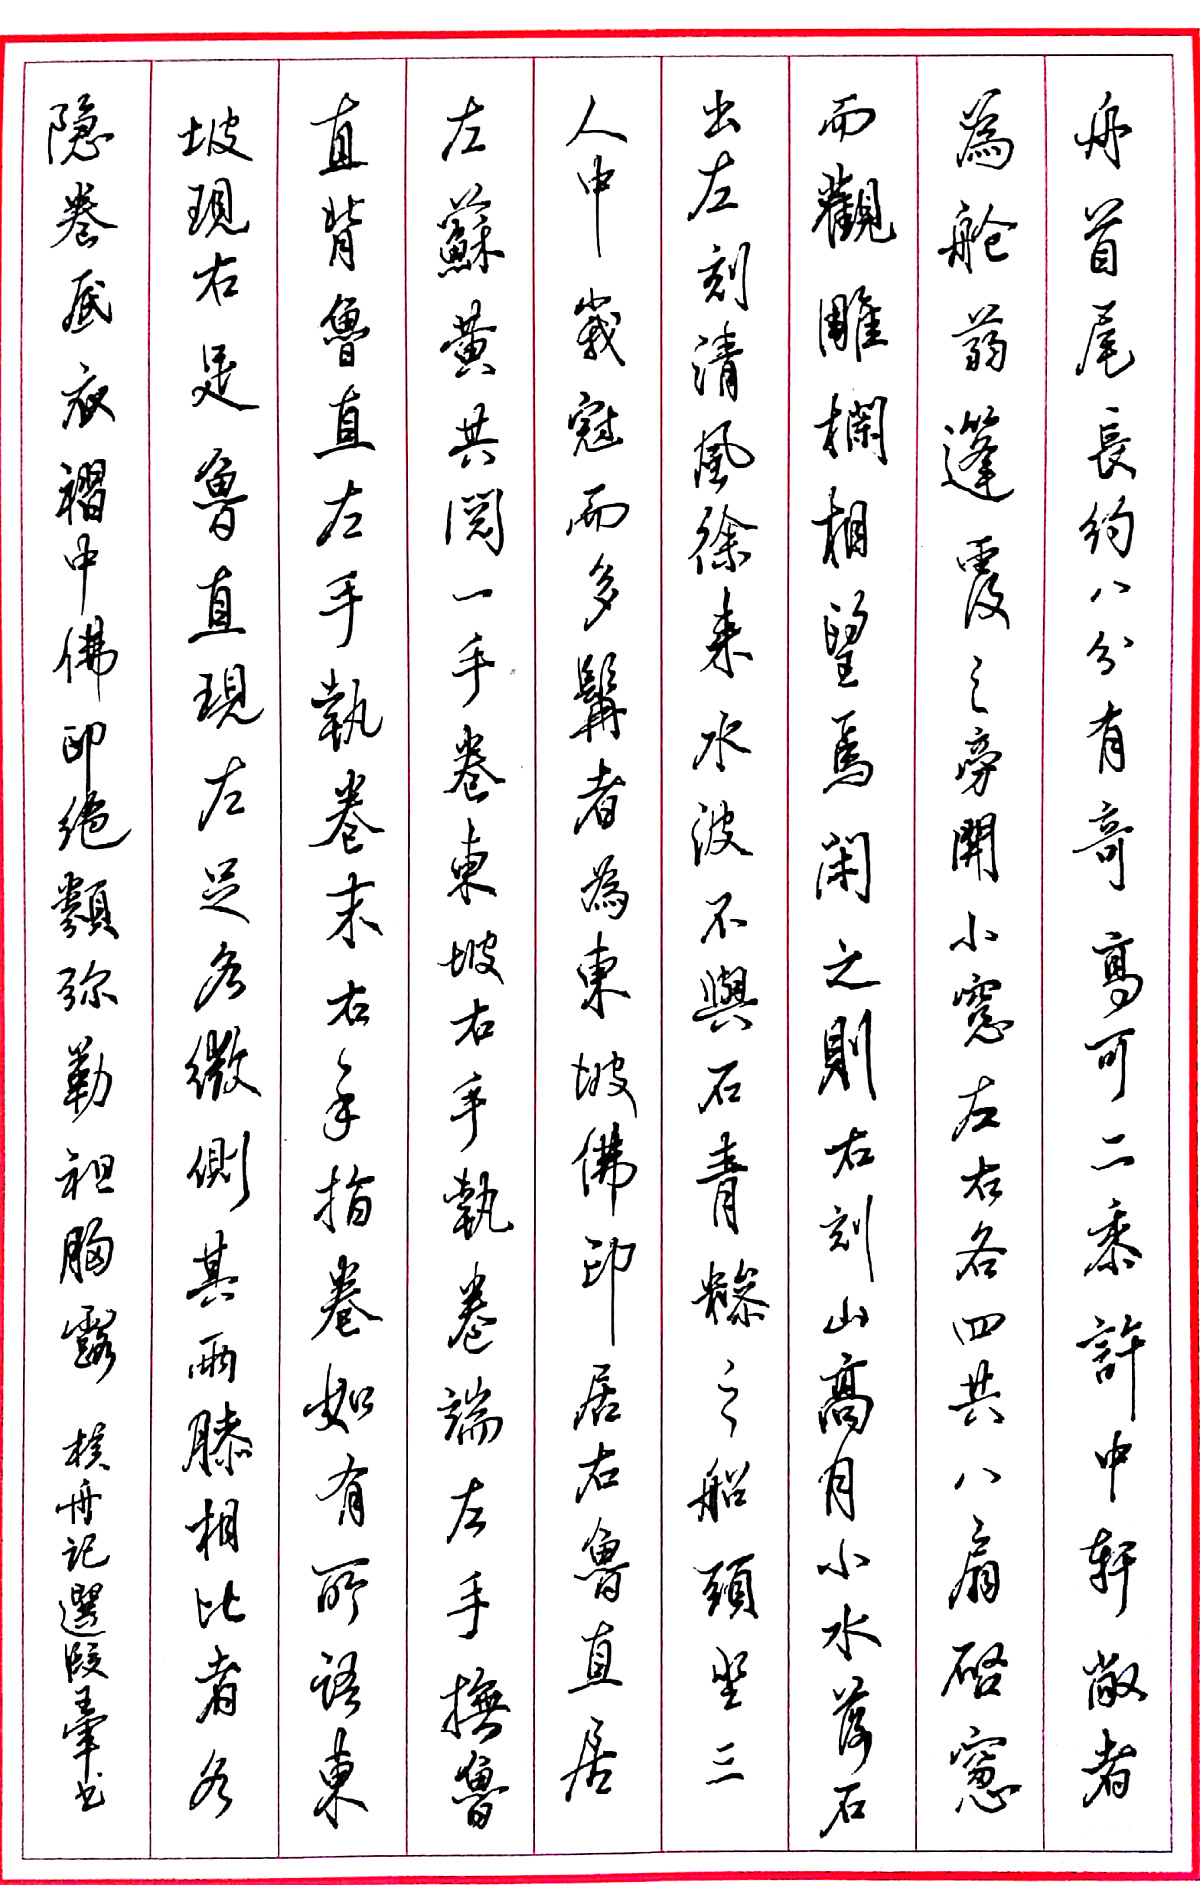 舟首尾長約八分有奇高可二黍許中軒敞者
為舱蒻篷覆之旁開小窻左右各四共八扇啓窻
而觀雕欄相望焉閑之則右刻山高月小水落石
出左刻清風徐来水波不興石青糝之船頭坐三
人中峩冠而多髯者為東坡佛印居右魯直居
左蘇黄共閲一手卷東坡右手執卷端左手撫魯
直背魯直左手執卷末右手指卷如有所語東
坡現右足魯直現左足各微側其兩膝相比者各
隐卷底衣褶中佛印绝類弥勒袒胸露 核舟記選段